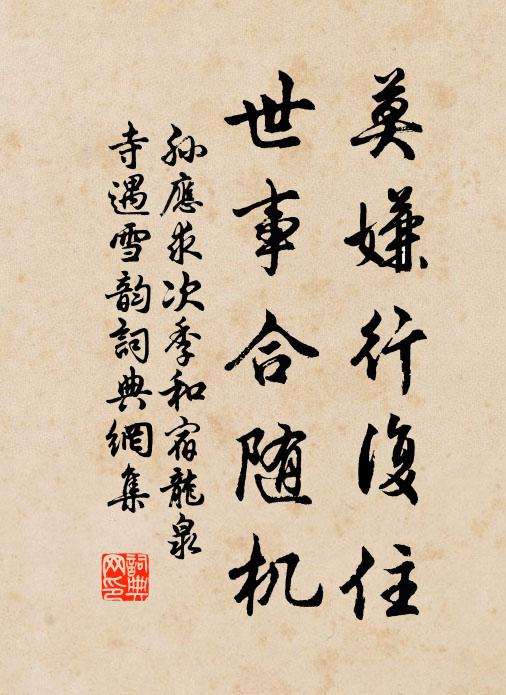 莫嫌行復住
世事合随机
孙應求次季和宿龍泉
寺遇雪韵詞典網集
詞典网印